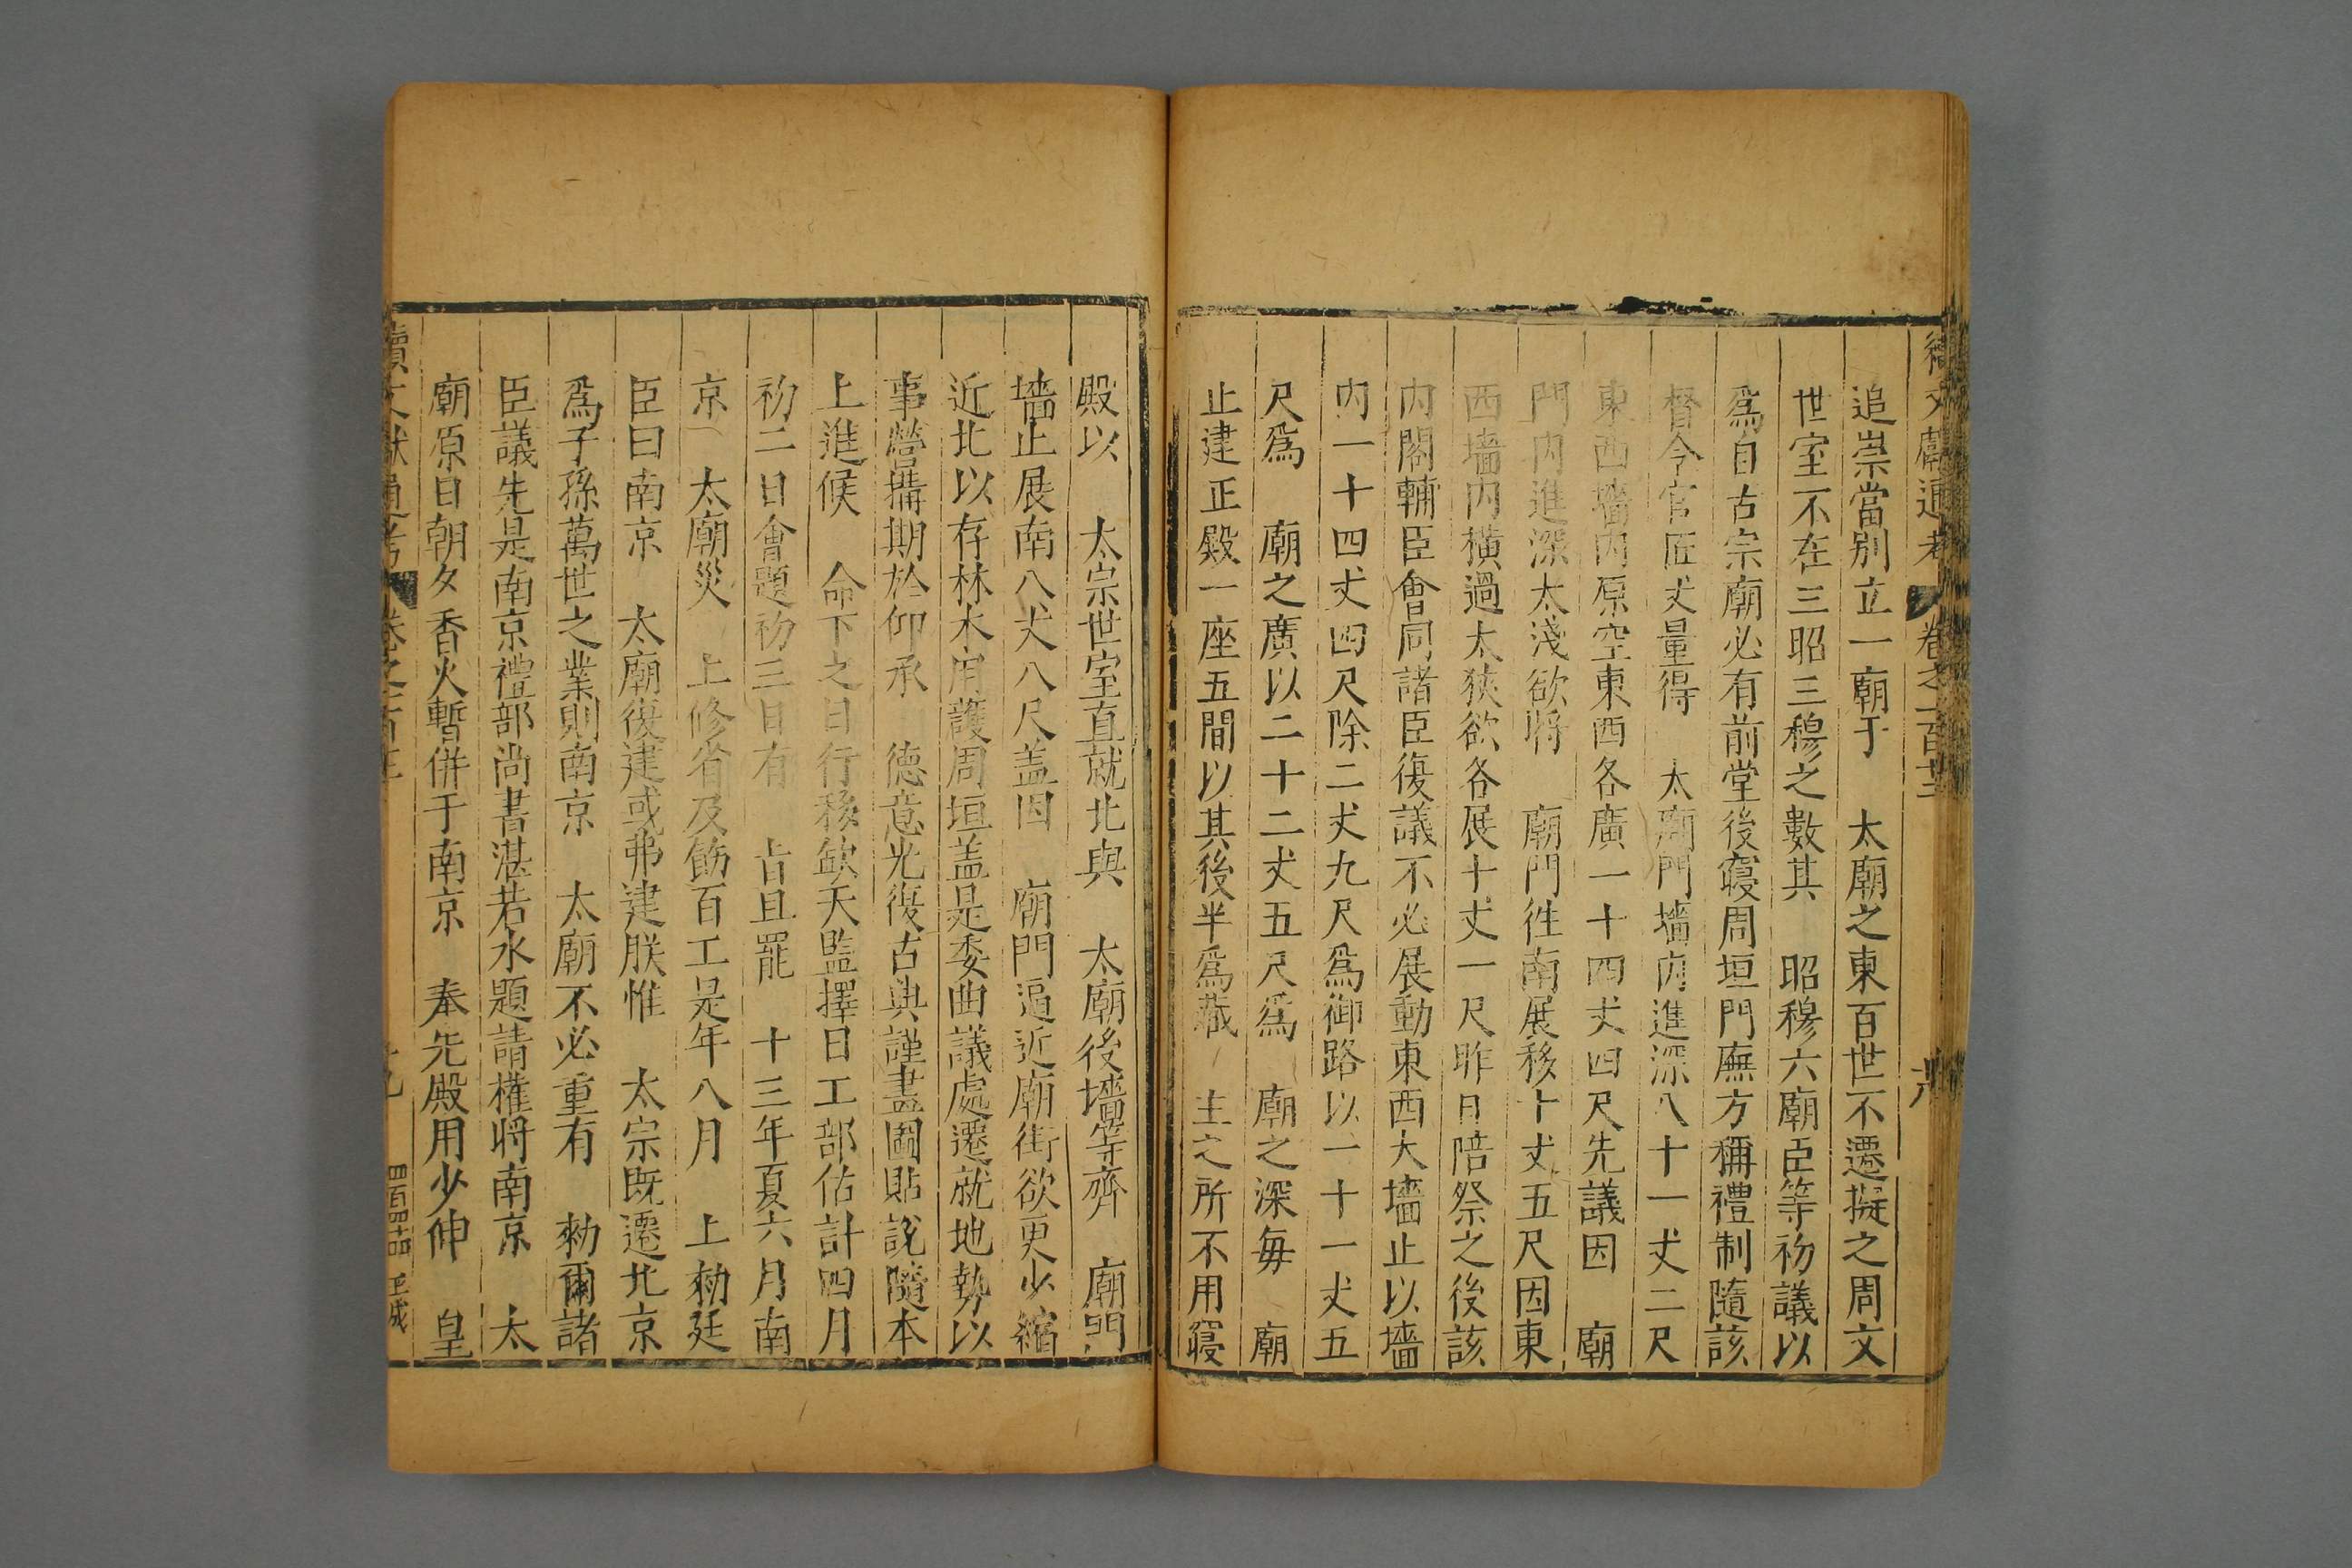 續文獻通考 卷之一百十三 六
追崇當别立一廟于 太廟之東百世不遷擬之周文
世室不在三昭三穆之數其 昭穆六廟臣等初議以
爲自古宗廟必有前堂後寢周垣門廡方稱禮制隨該
督令官匠丈量得 太廟門墻内進深八十一丈二尺
東西墻内原空東西各廣一十四丈四尺先議因 廟
門内進深太淺欲將 廟門徃南展移十丈五尺因東
西墻内橫過太狹欲各展十丈一尺昨日陪祭之後該
内閣輔臣會同諸臣復議不必展動東西大墻止以墻
内一十四丈四尺除二丈九尺爲御路以一十一丈五
尺爲 廟之廣以二十二丈五尺爲 廟之深每 廟
止建正殿一座五間以其後半爲藏 主之所不用寢
殿以 太宗世室直就北與 太廟後墻等齊 廟門
墻止展南八丈八尺盖因 廟門逼近廟街欲更少縮
近北以存林木用護周垣盖是委曲議處遷就地勢以
事營搆期於仰承 德意光復古典謹畫圖貼說隨本
上進候 命下之日行移欽天監擇日工部估計四月
初二日會題初三日有 旨且罷 十三年夏六月南
京 太廟災 上修省及飭百工是年八月 上勑廷
臣曰南京 太廟復建或弗建朕惟 太宗既遷北京
爲子孫萬世之業則南京 太廟不必重有 勑爾諸
臣議先是南京禮部尚書湛若水題請權將南京 太
廟原日朝夕香火暫併于南京 奉先殿用少伸 皇
續文獻通考 卷之百 九 四百四十四 王成